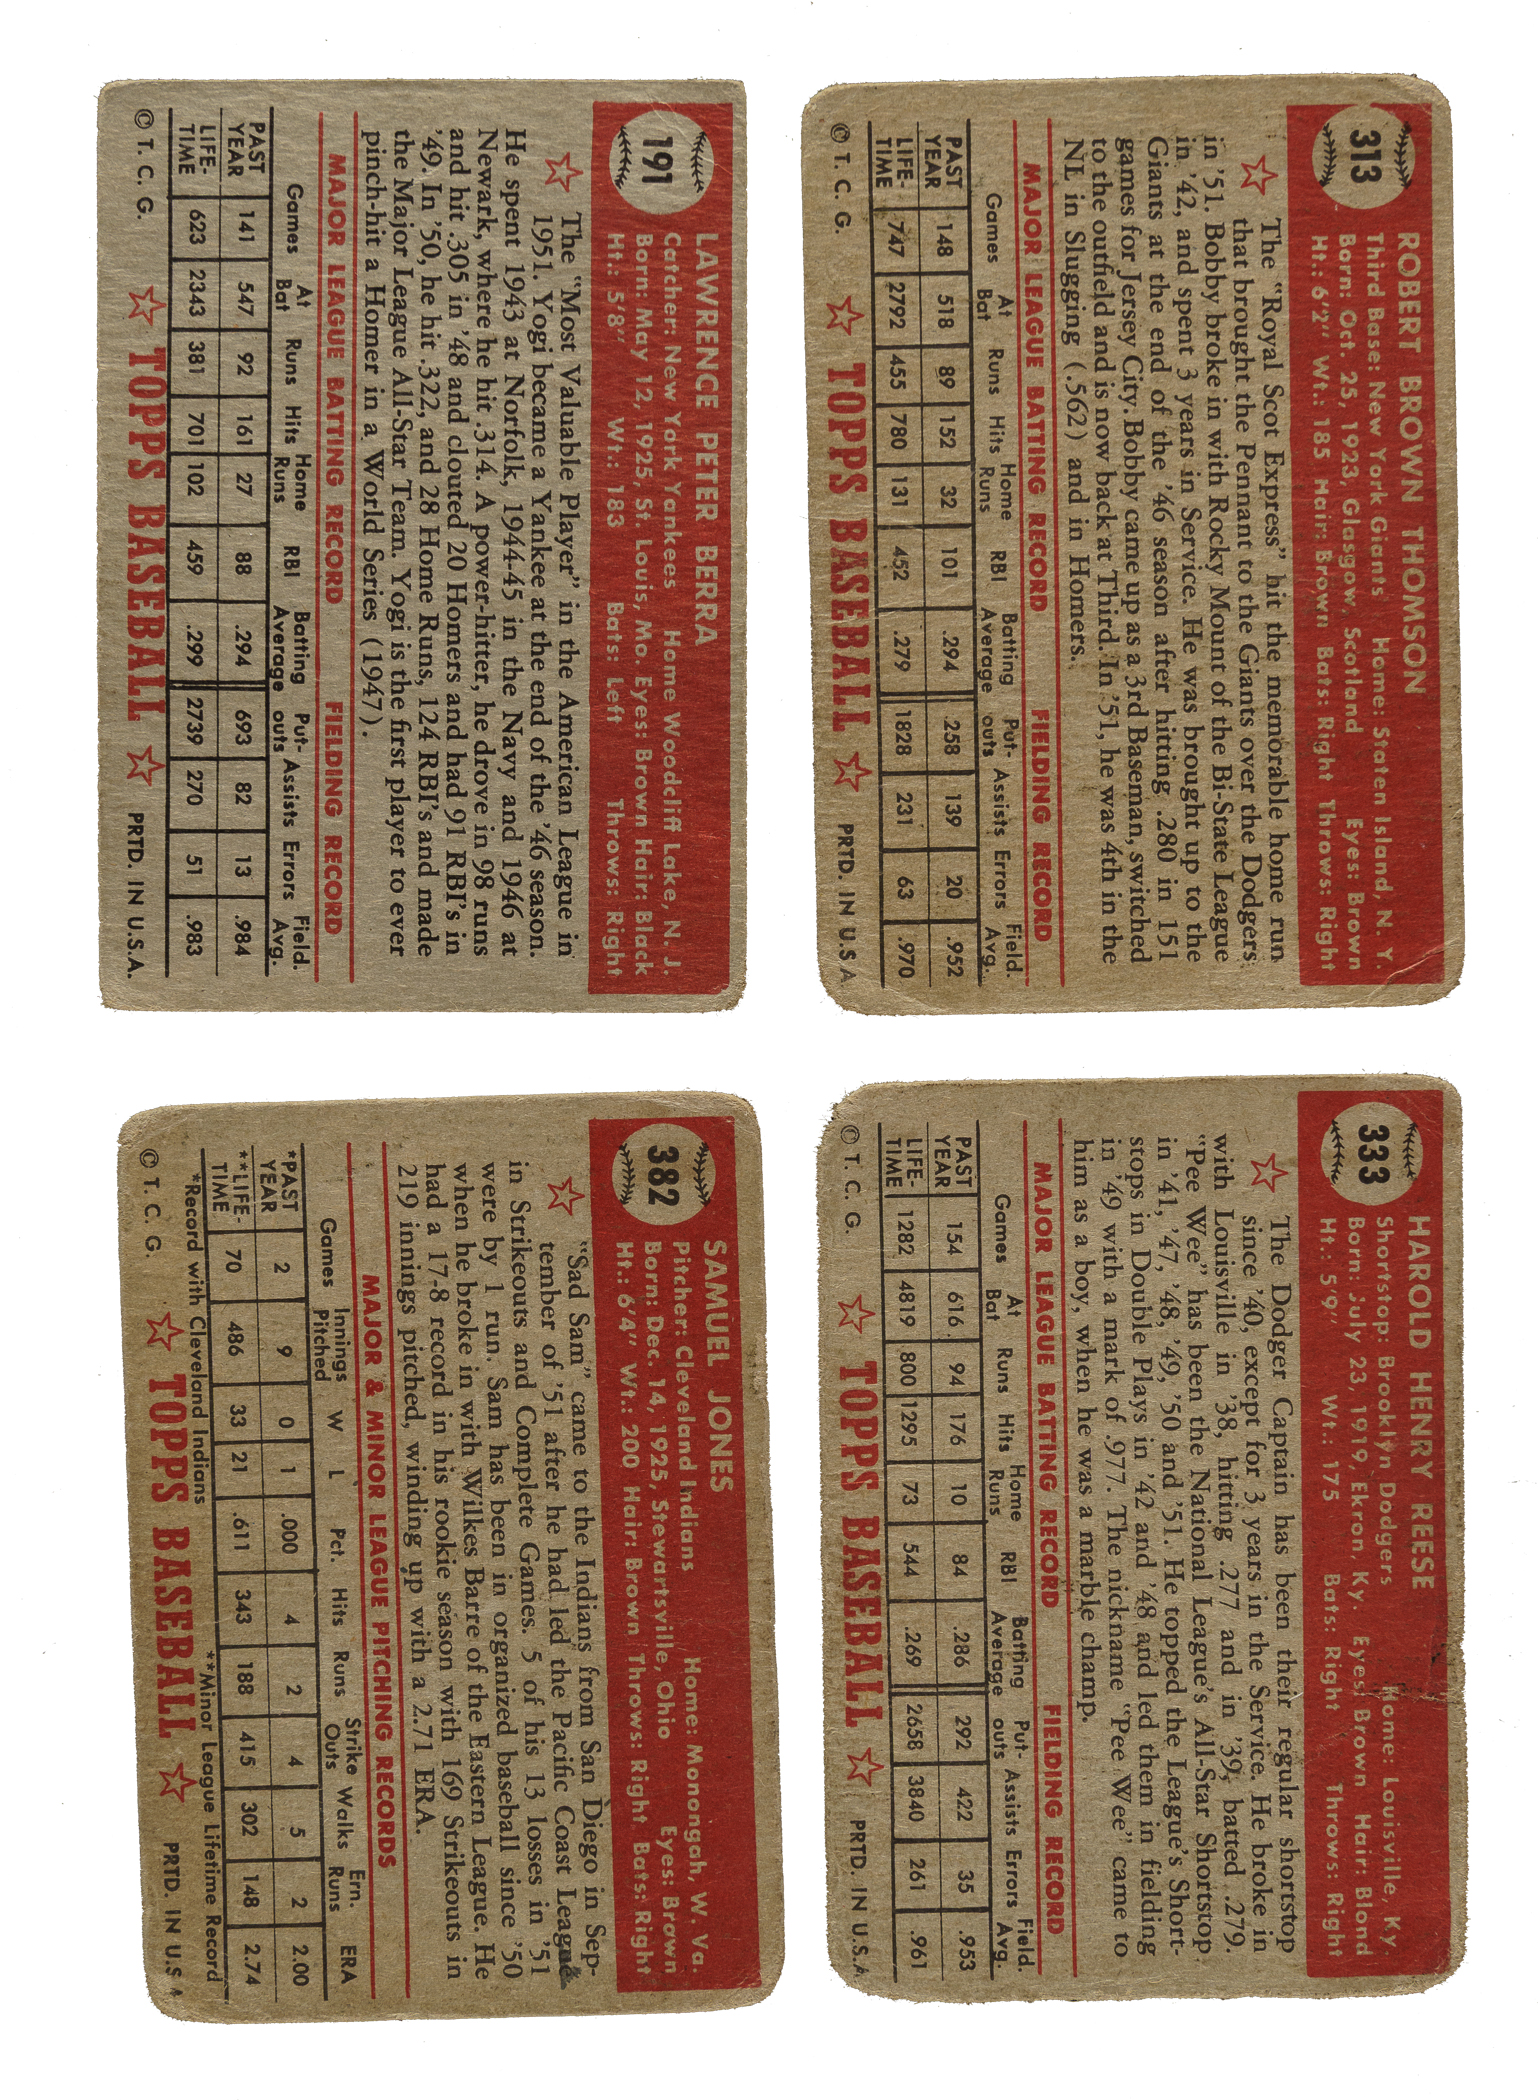 191
LAWRENCE PETER BERRA
Catcher: New York Yankees Home Woodcliff Lake, N. J.
Born: May 12, 1925, St. Louis, Mo. Eyes: Brown Hair: Black
Ht.: 5'8" Wt.: 183 Bats: Left Throws: Right
The "Most Valuable Player" in the American League in
1951. Yogi became a Yankee at the end of the '46 season.
He spent 1943 at Norfolk, 1944-45 in the Navy and 1946 at
Newark, where he hit .314. A power-hitter, he drove in 98 runs
and hit .305 in '48 and clouted 20 Homers and had 91 RBI's in
'49. In '50, he hit .322, and 28 Home Runs, 124 RBI's and made
the Major League All-Star Team. Yogi is the first player to ever
pinch-hit a Homer in a World Series (1947).
MAJOR LEAGUE BATTING RECORD FIELDING RECORD
Games At Bat Runs Hits Home Runs RBI Batting Average Put-outs Assists Errors Field. Avg.
PAST YEAR 141 547 92 161 27 88 .294 693 82 13 .984
LIFE-TIME 623 2343 381 701 102 459 .299 2739 270 51 .983
© T. C. G. TOPPS BASEBALL PRTD. IN U.S.A.
313
ROBERT BROWN THOMSON
Third Base: New York Giants Home: Staten Island, N. Y.
Born: Oct. 25, 1923, Glasgow, Scotland Eyes: Brown
Ht.: 6'2" Wt.: 185 Hair: Brown Bats: Right Throws: Right
The "Royal Scot Express" hit the memorable home run
that brought the Pennant to the Giants over the Dodgers
in '51. Bobby broke in with Rocky Mount of the Bi-State League
in '42, and spent 3 years in Service. He was brought up to the
Giants at the end of the '46 season after hitting .280 in 151
games for Jersey City. Bobby came up as a 3rd Baseman, switched
to the outfield and is now back at Third. In '51, he was 4th in the
NL in Slugging (.562) and in Homers.
MAJOR LEAGUE BATTING RECORD FIELDING RECORD
Games At Bat Runs Hits Home Runs RBI Batting Average Put-outs Assists Errors Field. Avg.
PAST YEAR 148 518 89 152 32 101 .294 258 139 20 .952
LIFE-TIME 747 2792 455 780 131 452 .279 1828 231 63 .970
© T. C. G. TOPPS BASEBALL PRTD. IN U.S.A
382
SAMUEL JONES
Pitcher: Cleveland Indians Home: Monongah, W. Va.
Born: Dec. 14, 1925, Stewartsville, Ohio Eyes: Brown
Ht.: 6'4" Wt.: 200 Hair: Brown Throws: Right Bats: Right
"Sad Sam" came to the Indians from San Diego in Sep-
tember of '51 after he had led the Pacific Coast League
in Strikeouts and Complete Games. 5 of his 13 losses in '51
were by 1 run. Sam has been in organized baseball since '50
when he broke in with Wilkes Barre of the Eastern League. He
had a 17-8 record in his rookie season with 169 Strikeouts in
219 innings pitched, winding up with a 2.71 ERA.
MAJOR & MINOR LEAGUE PITCHING RECORDS
Games Innings Pitched W L Pct. Hits Runs Strike Outs Walks Ern. Runs ERA
*PAST YEAR 2 9 0 1 .000 4 2 4 5 2 2.00
**LIFE-TIME 70 486 33 21 .611 343 188 415 302 148 2.74
*Record with Cleveland Indians **Minor League Lifetime Record
© T. C. G. TOPPS BASEBALL PRTD. IN U.S.A
333
HAROLD HENRY REESE
Shortstop: Brooklyn Dodgers Home: Louisville, Ky.
Born: July 23, 1919, Ekron, Ky. Eyes: Brown Hair: Blond
Ht.: 5'9" Wt.: 175 Bats: Right Throws: Right
The Dodger Captain has been their regular shortstop
since '40, except for 3 years in the Service. He broke in
with Louisville in '38, hitting .277 and in '39, batted .279.
"Pee Wee" has been the National League's All-Star Shortstop
in '41, '47, '48, '49, '50 and '51. He topped the League's Short-
stops in Double Plays in '42 and '48 and led them in fielding
in '49 with a mark of .977. The nickname "Pee Wee" came to
him as a boy, when he was a marble champ.
MAJOR LEAGUE BATTING RECORD FIELDING RECORD
Games At Bat Runs Hits Home Runs RBI Batting Average Put-outs Assists Errors Field. Avg.
PAST YEAR 154 616 94 176 10 84 .286 292 422 35 .953
LIFE-TIME 1282 4819 800 1295 73 544 .269 2658 3840 261 .961
© T. C. G. TOPPS BASEBALL PRTD. IN U.S.A.